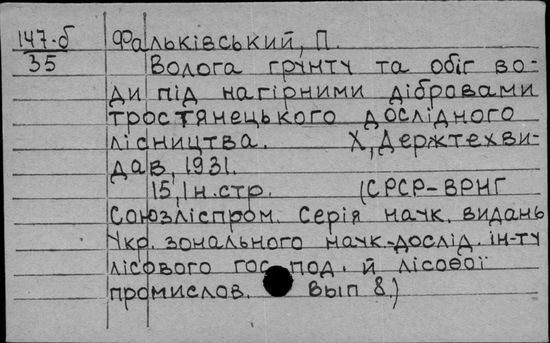 147-б Фальківський, П.
35 Волога грунту та обіг во-
ди під нагірними дібровами
тростянецького дослідного
лісництва. Х, Держтехви-
дав, 1931.
15, 1 н. стр. (СРСР-ВРНГ
Союзліспром. Серія наук. видань
Укр. зонального наук.-дослід. ін-ту
лісового господ. й лісової
промислов. Вып 8.)